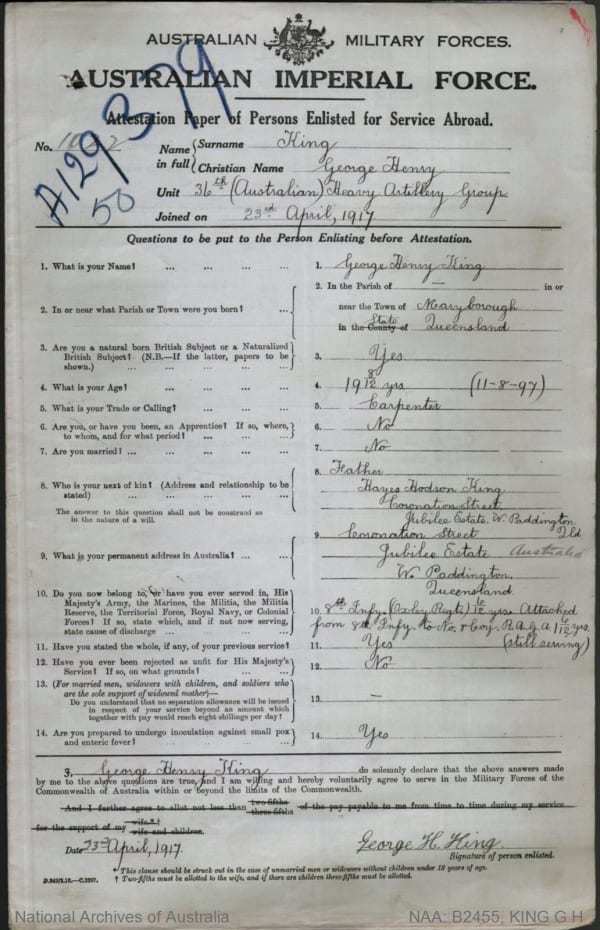 AUSTRALIAN MILITARY FORCES.
AUSTRALIAN IMPERIAL FORCE.
A129379
50
Attestation Paper of Persons Enlisted for Service Abroad.
No. 1022
Name in full
Surname King
Christian Name George Henry
Unit 36th (Australian) Heavy Artillery Group
Joined on 23rd April, 1917
Questions to be put to the Person Enlisting before Attestation.
1. What is your Name? ... ... ... ...
1. George Henry King
2. In or near what Parish or Town were you born? ...
2. In the Parish of — in or
near the Town of Maryborough
in the County of State Queensland
3. Are you a natural born British Subject or a Naturalized
British Subject? (N.B.—If the latter, papers to be
shown.) ... ... ... ...
3. Yes
4. What is your Age? ... ... ... ...
4. 19 8/12 yrs (11-8-97)
5. What is your Trade or Calling? ... ... ...
5. Carpenter
6. Are you, or have you been, an Apprentice? If so, where,
to whom, and for what period? ... ... ...
6. No
7. Are you married? ... ... ... ... ...
7. No
8. Who is your next of kin? (Address and relationship to be
stated) ... ... ... ... ...
The answer to this question shall not be construed as
in the nature of a will.
8. Father
Hayes Hodson King
Coronation Street
Jubilee Estate. W. Paddington
Qld
9. What is your permanent address in Australia? ... ...
9. Coronation Street
Jubilee Estate Australia
W. Paddington.
Queensland
10. Do you now belong to, or have you ever served in, His
Majesty's Army, the Marines, the Militia, the Militia
Reserve, the Territorial Force, Royal Navy, or Colonial
Forces? If so, state which, and if not now serving,
state cause of discharge ... ... ...
10. 8th Infy. (Oxley Regt) 6/12 yrs. Attached
from 8th Infy. to No. 8 Coy. R.A.G.A. 1 6/12 yrs.
(still serving)
11. Have you stated the whole, if any, of your previous service?
11. Yes
12. Have you ever been rejected as unfit for His Majesty's
Service? If so, on what grounds? ... ...
12. No
13. (For married men, widowers with children, and soldiers who
are the sole support of widowed mother)—
Do you understand that no separation allowance will be issued
in respect of your service beyond an amount which
together with pay would reach eight shillings per day?
13. —
14. Are you prepared to undergo inoculation against small pox
and enteric fever? ... ... ... ...
14. Yes
I, George Henry King do solemnly declare that the above answers made
by me to the above questions are true, and I am willing and hereby voluntarily agree to serve in the Military Forces of the
Commonwealth of Australia within or beyond the limits of the Commonwealth.
And I further agree to allot not less than two-fifths three-fifths of the pay payable to me from time to time during my service
for the support of my wife.*† wife and children.
Date 23rd April, 1917.
George H. King.
Signature of person enlisted.
* This clause should be struck out in the case of unmarried men or widowers without children under 18 years of age.
† Two-fifths must be allotted to the wife, and if there are children three-fifths must be allotted.
National Archives of Australia
NAA: B2455, KING G H